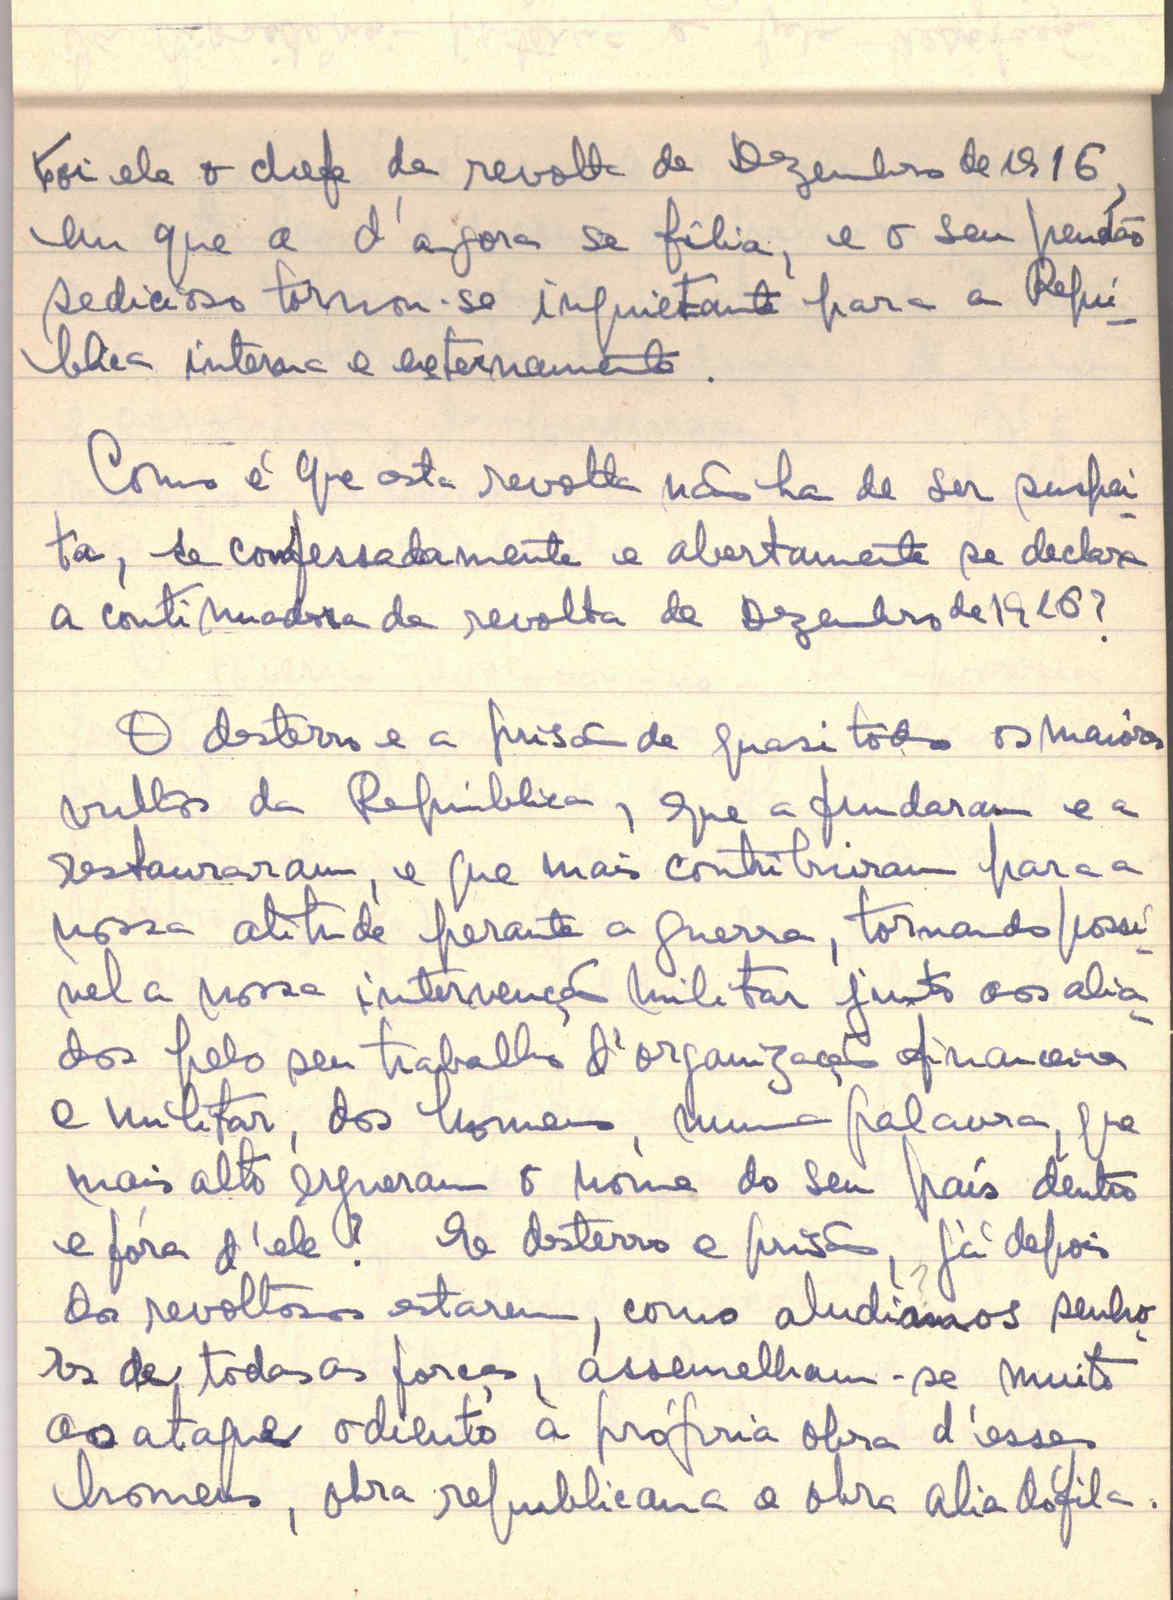 Foi ele o chefe da revolta de Dezembro de 1916,
em que a d'agora se filia, e o seu pendão
sedicioso tornou-se inquietante para a Repú-
blica interna e externamente.
Como é que esta revolta não ha de ser suspei-
ta, se confessadamente e abertamente se declara
a continuadora da revolta de Dezembro de 1916?
O desterro e a prisão de quasi todos os maiores
vultos da República, que a fundaram e a
restauraram, e que mais contribuiram para a
nossa atitude perante a guerra, tornando possi-
vel a nossa intervenção militar junto aos alia-
dos pelo seu trabalho d'organização financeira
e militar, dos homens, numa palavra, que
mais alto ergueram o nome do seu país dentro
e fóra d'ele? Se desterro e prisão, já depois
dos revoltosos estarem, como aludiamos senho-
res de todas as forças, assemelham-se muito
ao ataque odiento à própria obra d'esses
homens, obra republicana e obra aliadófila.